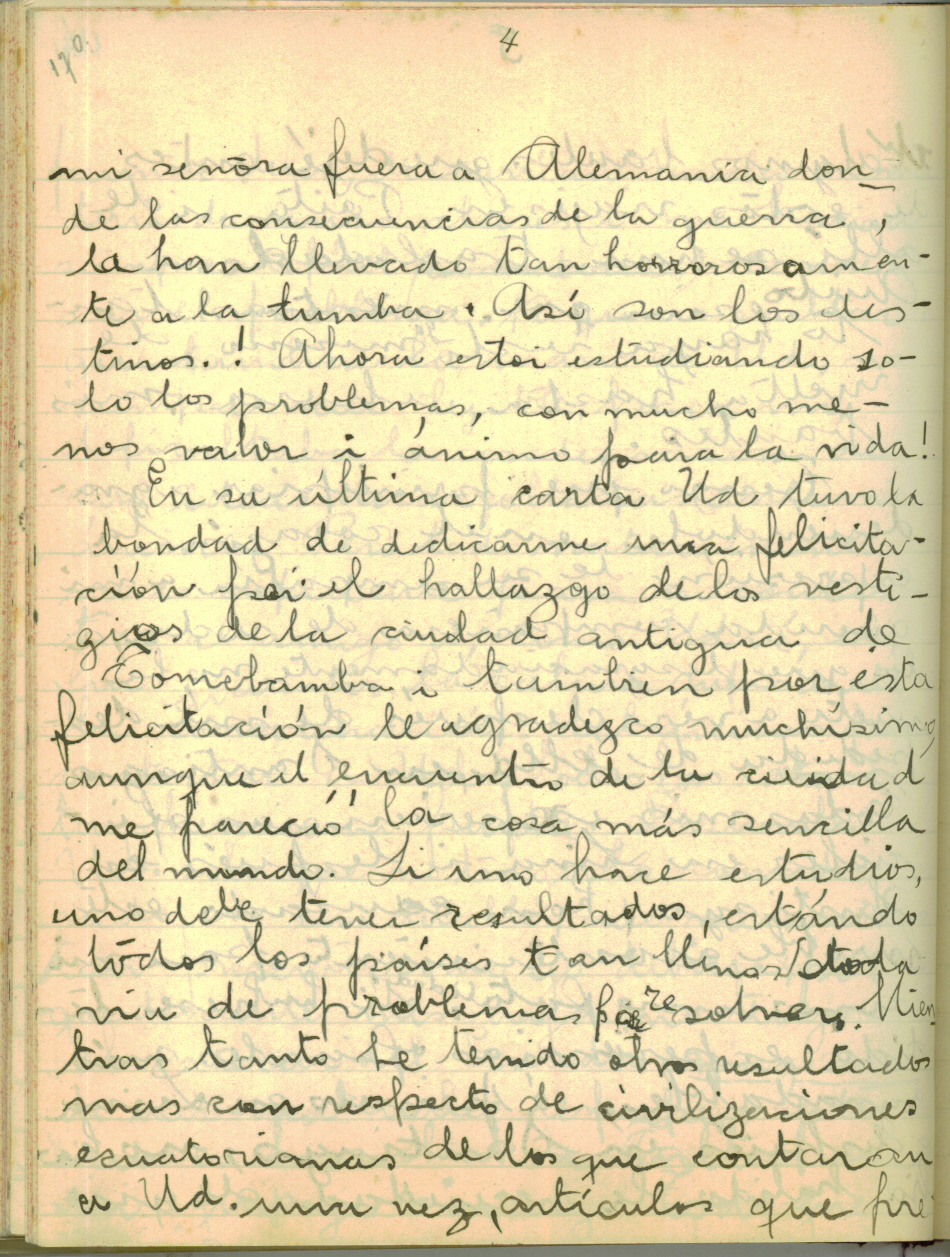 4
170.
mi senōra fuera a Alemania don-
de las consecuencias de la guerra,
la han llevado tan horrorosamen-
te a la tumba. Así son los des-
tinos.! Ahora estoi estudiando so-
lo los problemas, con mucho me-
nos valor i ánimo para la vida!
En su última carta Ud tuvo la
bondad de dedicarme una felicita-
ción por el hallazgo de los vesti-
gios de la ciudad antigua de
Tomebamba i tambien por ésta
felicitación le agradezco muchísimo
aunque el encuentro de la ciudad
me pareció la cosa más sencilla
del mundo. Si uno hace estudios,
uno debe tener resultados, estándo
tōdos los países tan llenos toda
via de problemas resolver. Mien
tras tanto he tenido otros resultados
mas con respecto de civilizaciones
ecuatorianas de los que contaran
a Ud. una vez, artículos que pre